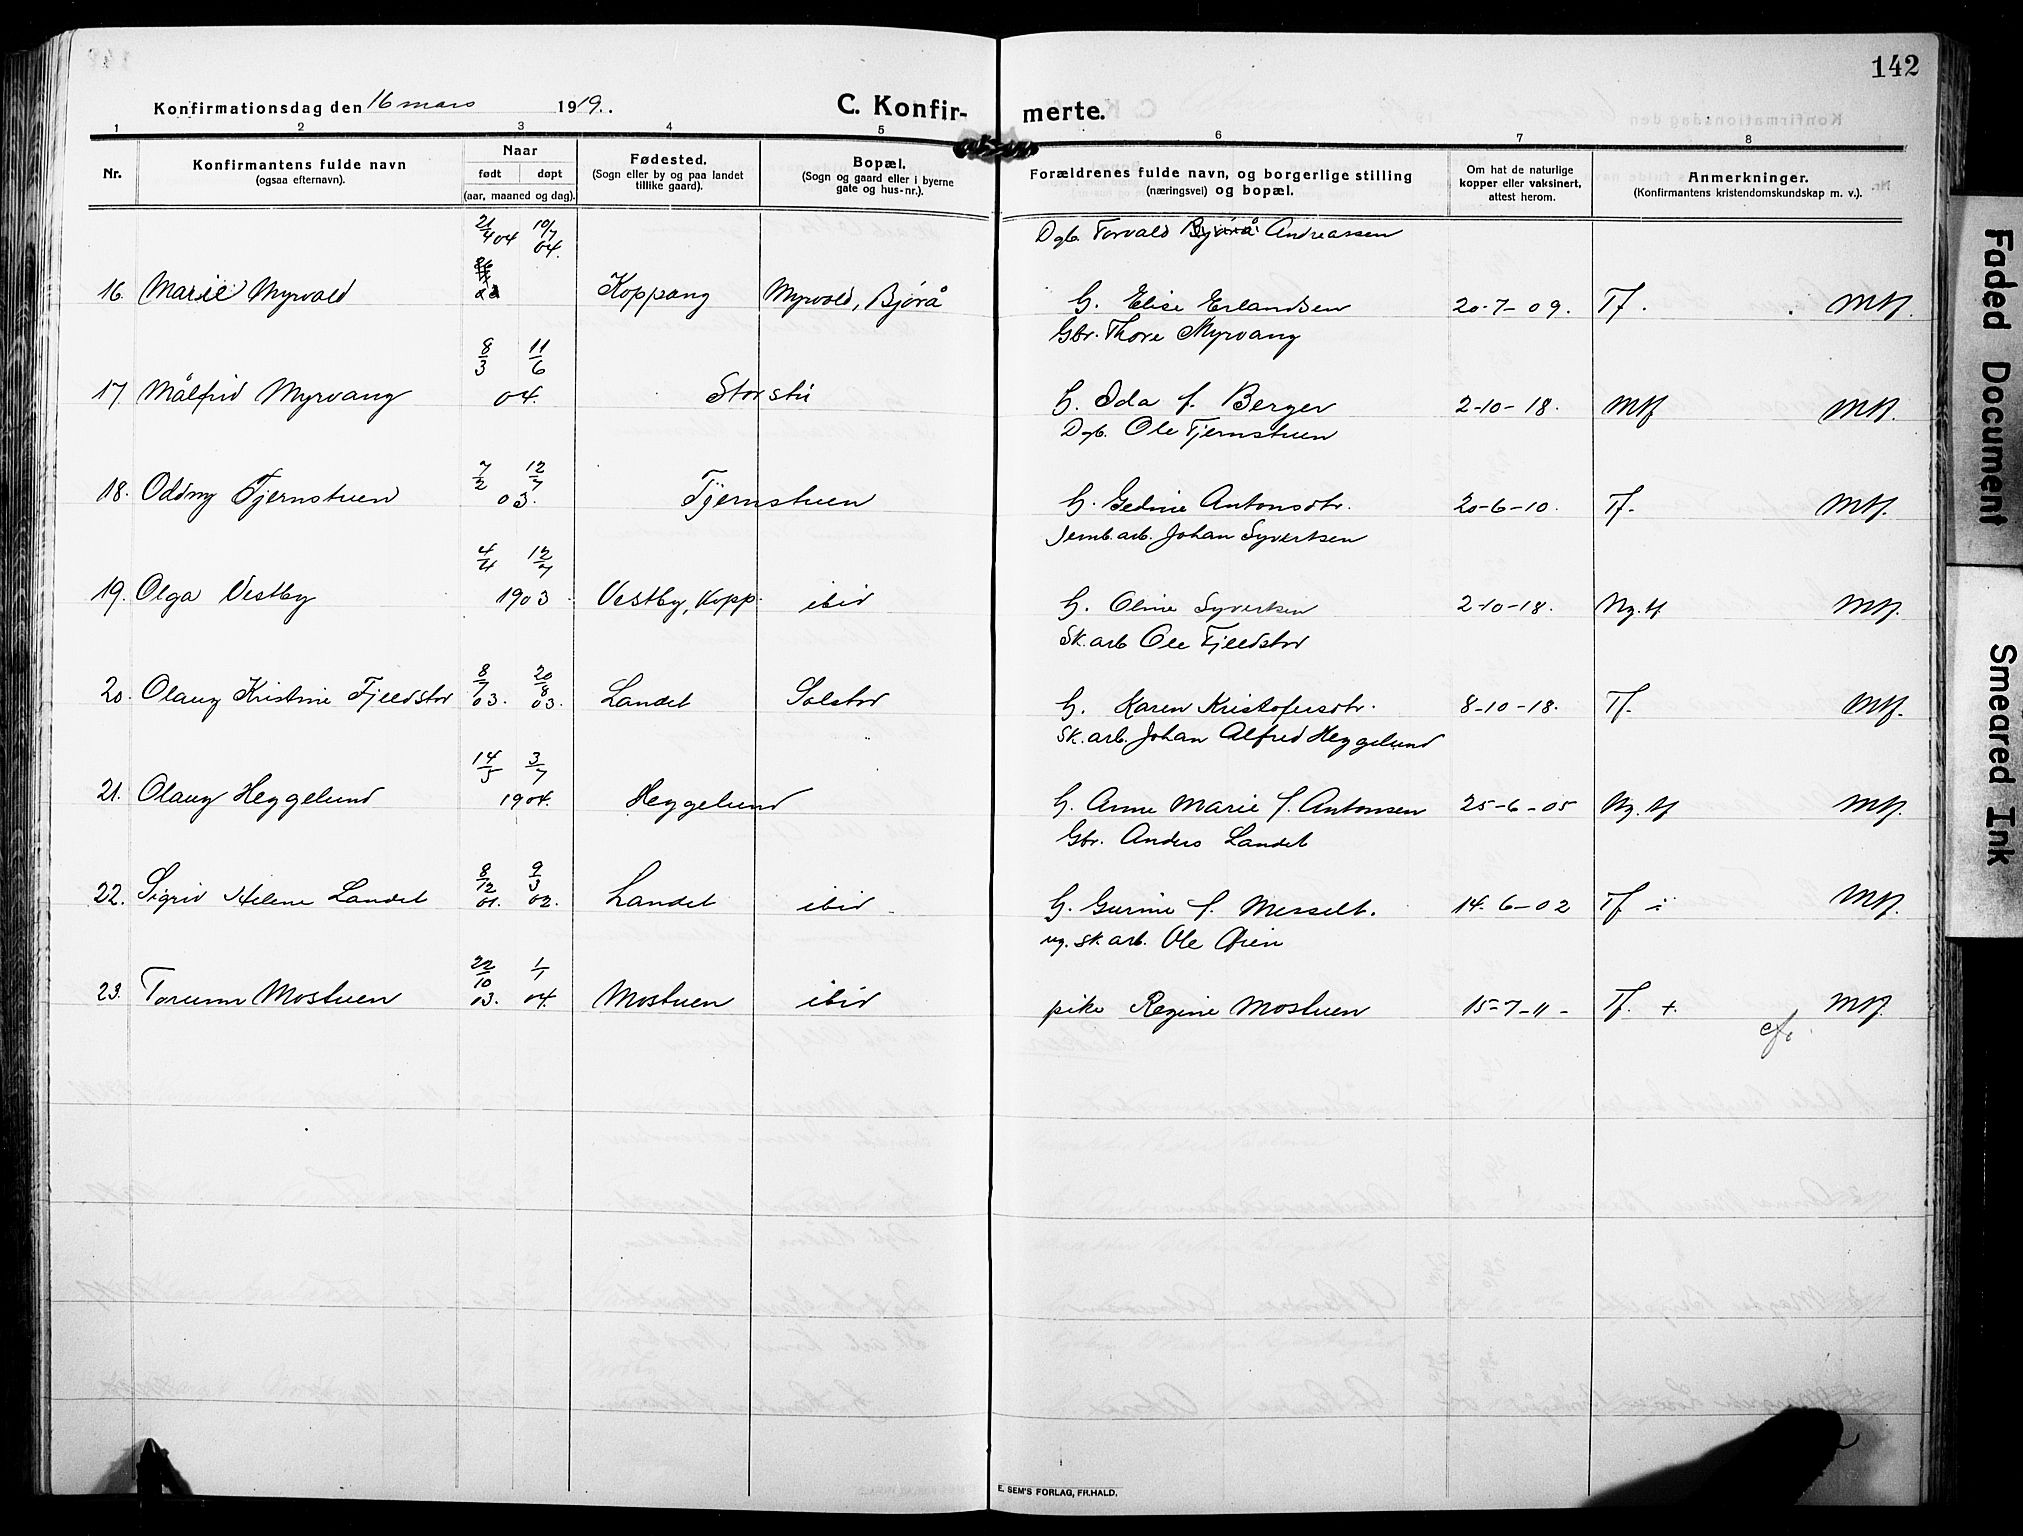 142
Konfirmationsdag den 16 mars 1919.
C. Konfir-merte.
1 2 3 4 5 6 7 8
Nr.
Konfirmantens fulde navn
(ogsaa efternavn).
Naar
født døpt
(aar, maaned og dag).
Fødested.
(Sogn eller by og paa landet
tillike gaard).
Bopæl.
(Sogn og gaard eller i byerne
gate og hus-nr.).
Forældrenes fulde navn, og borgerlige stilling
(næringsvei) og bopæl.
Om hat de naturlige
kopper eller vaksinert,
attest herom.
Anmerkninger.
(Konfirmantens kristendomskundskap m. v.).
21/4 04 10/7 04. Dgb. Torvald Bjørå Andreassen
16. Marie Myrvold Koppang Myrvold, Bjørå G. Elise Erlandsen 20-7-09. Tf.
8/3 11/6 Gbr. Thore Myrvang
17. Målfrid Myrvang 04. Storsti G. Ida f. Berger 2-10-18.
7/2 12/7 Dgb. Ole Tjernstuen
18. Oddny Tjernstuen 03. Tjernstuen G. Gedine Antonsdtr. 20-6-10. Tf.
4/4 12/7 Jernb.arb. Johan Syvertsen
19. Olga Vestby 1903 Vestby, Kopp. ibid G. Oline Syvertsen 2-10-18. Ng. tf
8/7 20/8 Sk.arb Ole Fjeldstad
20. Olaug Kristine Fjeldstad 03. 03. Landet Solstad G. Karen Kristofersdtr. 8-10-18. Tf.
14/5 3/7 Sk.arb. Johan Alfred Heggelund
21. Olaug Heggelund 1904. Heggelund G. Anne Marie f. Antonsen 25-6-05 Ng. tf
8/12 9/3 Gbr. Anders Landet
22. Sigrid Helene Landet 01. 02. Landet ibid G. Gurine f. Messelt. 14. 6-02 Tf
22/10 1/1 ug. sk. arb. Ole
23. Torunn Mostuen 03. 04. Mostuen ibid pike Regine Mostuen 15-7-11- Tf. +.
E. SEM'S FORLAG, FR.HALD.
Faded Document
Smeared Ink